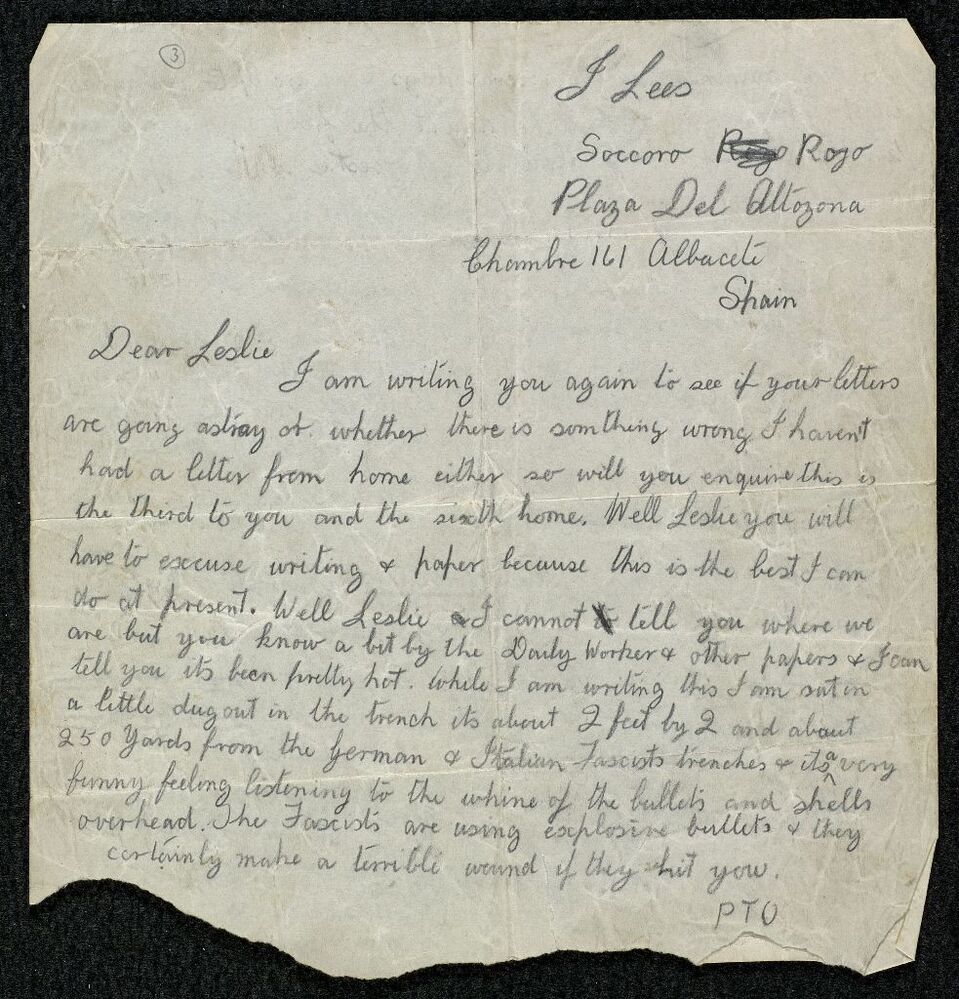 3
J Lees
Soccoro Rojo
Plaza Del Altozona
Chambre 161 Albacete
Spain
Dear Leslie
I am writing you again to see if your letters
are going astray or whether there is somthing wrong I havent
had a letter from home either so will you enquire this is
the third to you and the sixth home. Well Leslie you will
have to excuse writing & paper because this is the best I can
do at present. Well Leslie I cannot tell you where we
are but you know a bit by the Daily Worker & other papers & I can
tell you its been pretty hot. While I am writing this I am sat in
a little dugout in the trench its about 2 feet by 2 and about
250 Yards from the German & Italian Fascists trenches & its a very
funny feeling listening to the whine of the bullets and shells
overhead. The Fascists are using explosive bullets & they
certainly make a terrible wound if they hit you.
PTO